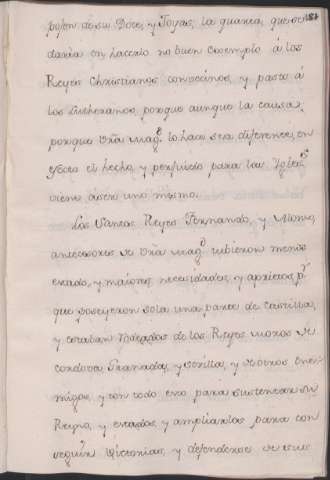 poſon de su Dote, y Joyas, la quarta, que se
daría en hacerlo no buen exemplo á los
Reyes Christianos convecinos, y pasto á
los Lutheranos porque aunque la causa,
porque Vrã Magᵈ lo hace sea diferente, en
efecto el hecho, y perjuicio para las Yglesˢ
viene á ser uno mismo.
Los Santos Reyes Fernando, y Alonso,
antecesores de Vrã Magᵈ tubieron menos
estado, y maiores necesidades, y aprietos, pʳ
que poseyeron sola una parte de Castilla,
y estaban de los Reyes moros de
Cordova Granada, y Sevilla, y de otros ene
migos, y con todo eso para sustentar su
Reyno, y estados, y ampliarlos para con
seguir Victorias, y defenderse de sus